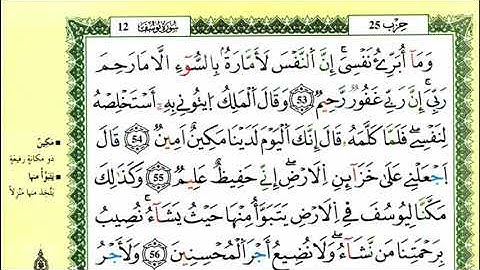 حِزْب 25
سُورَةُ يُوسُفَ 12
وَمَآ أُبَرِّئُ نَفْسِىٓۚ إِنَّ ٱلنَّفْسَ لَأَمَّارَةُۢ بِٱلسُّوٓءِ إِلَّا مَا رَحِمَ
رَبِّىٓۚ إِنَّ رَبِّى غَفُورٌ رَّحِيمٌ 53 وَقَالَ ٱلْمَلِكُ ٱئْتُونِى بِهِۦٓ أَسْتَخْلِصْهُ
لِنَفْسِىۖ فَلَمَّا كَلَّمَهُۥ قَالَ إِنَّكَ ٱلْيَوْمَ لَدَيْنَا مَكِينٌ أَمِينٌ 54 قَالَ
ٱجْعَلْنِى عَلَىٰ خَزَآئِنِ ٱلْأَرْضِۖ إِنِّى حَفِيظٌ عَلِيمٌ 55 وَكَذَٰلِكَ
مَكَّنَّا لِيُوسُفَ فِى ٱلْأَرْضِ يَتَبَوَّأُ مِنْهَا حَيْثُ يَشَآءُۚ نُصِيبُ
بِرَحْمَتِنَا مَن نَّشَآءُۖ وَلَا نُضِيعُ أَجْرَ ٱلْمُحْسِنِينَ 56 وَلَأَجْرُ
مَكِينٌ
ذو مكانةٍ رفيعةٍ
يَتَبَوَّأُ منها
يتّخذ منها منزلاً